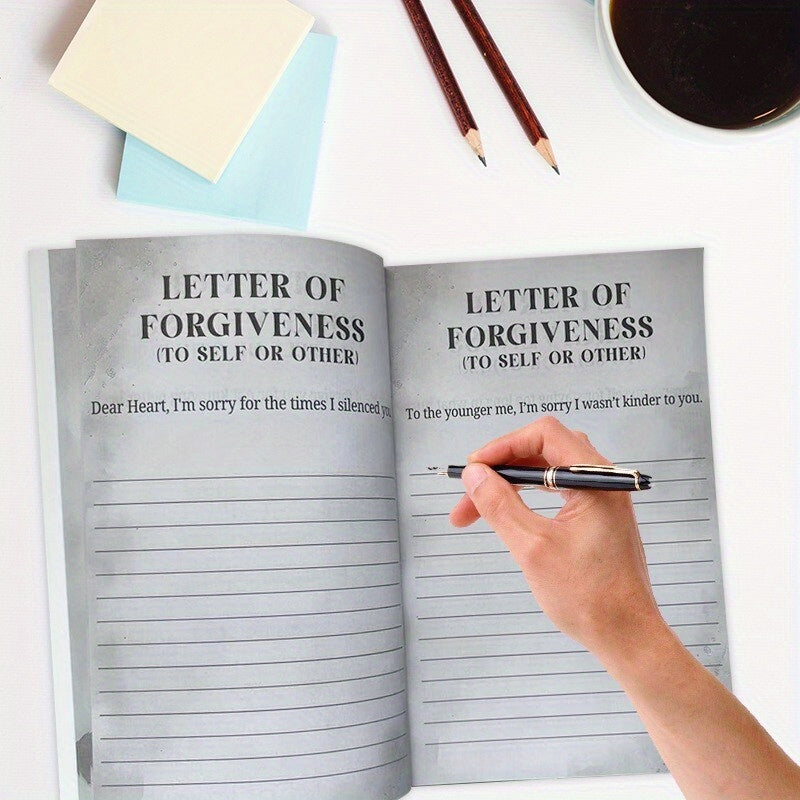 LETTER OF
FORGIVENESS
(TO SELF OR OTHER)
Dear Heart, I'm sorry for the times I silenced you.
LETTER OF
FORGIVENESS
(TO SELF OR OTHER)
To the younger me, I'm sorry I wasn't kinder to you.